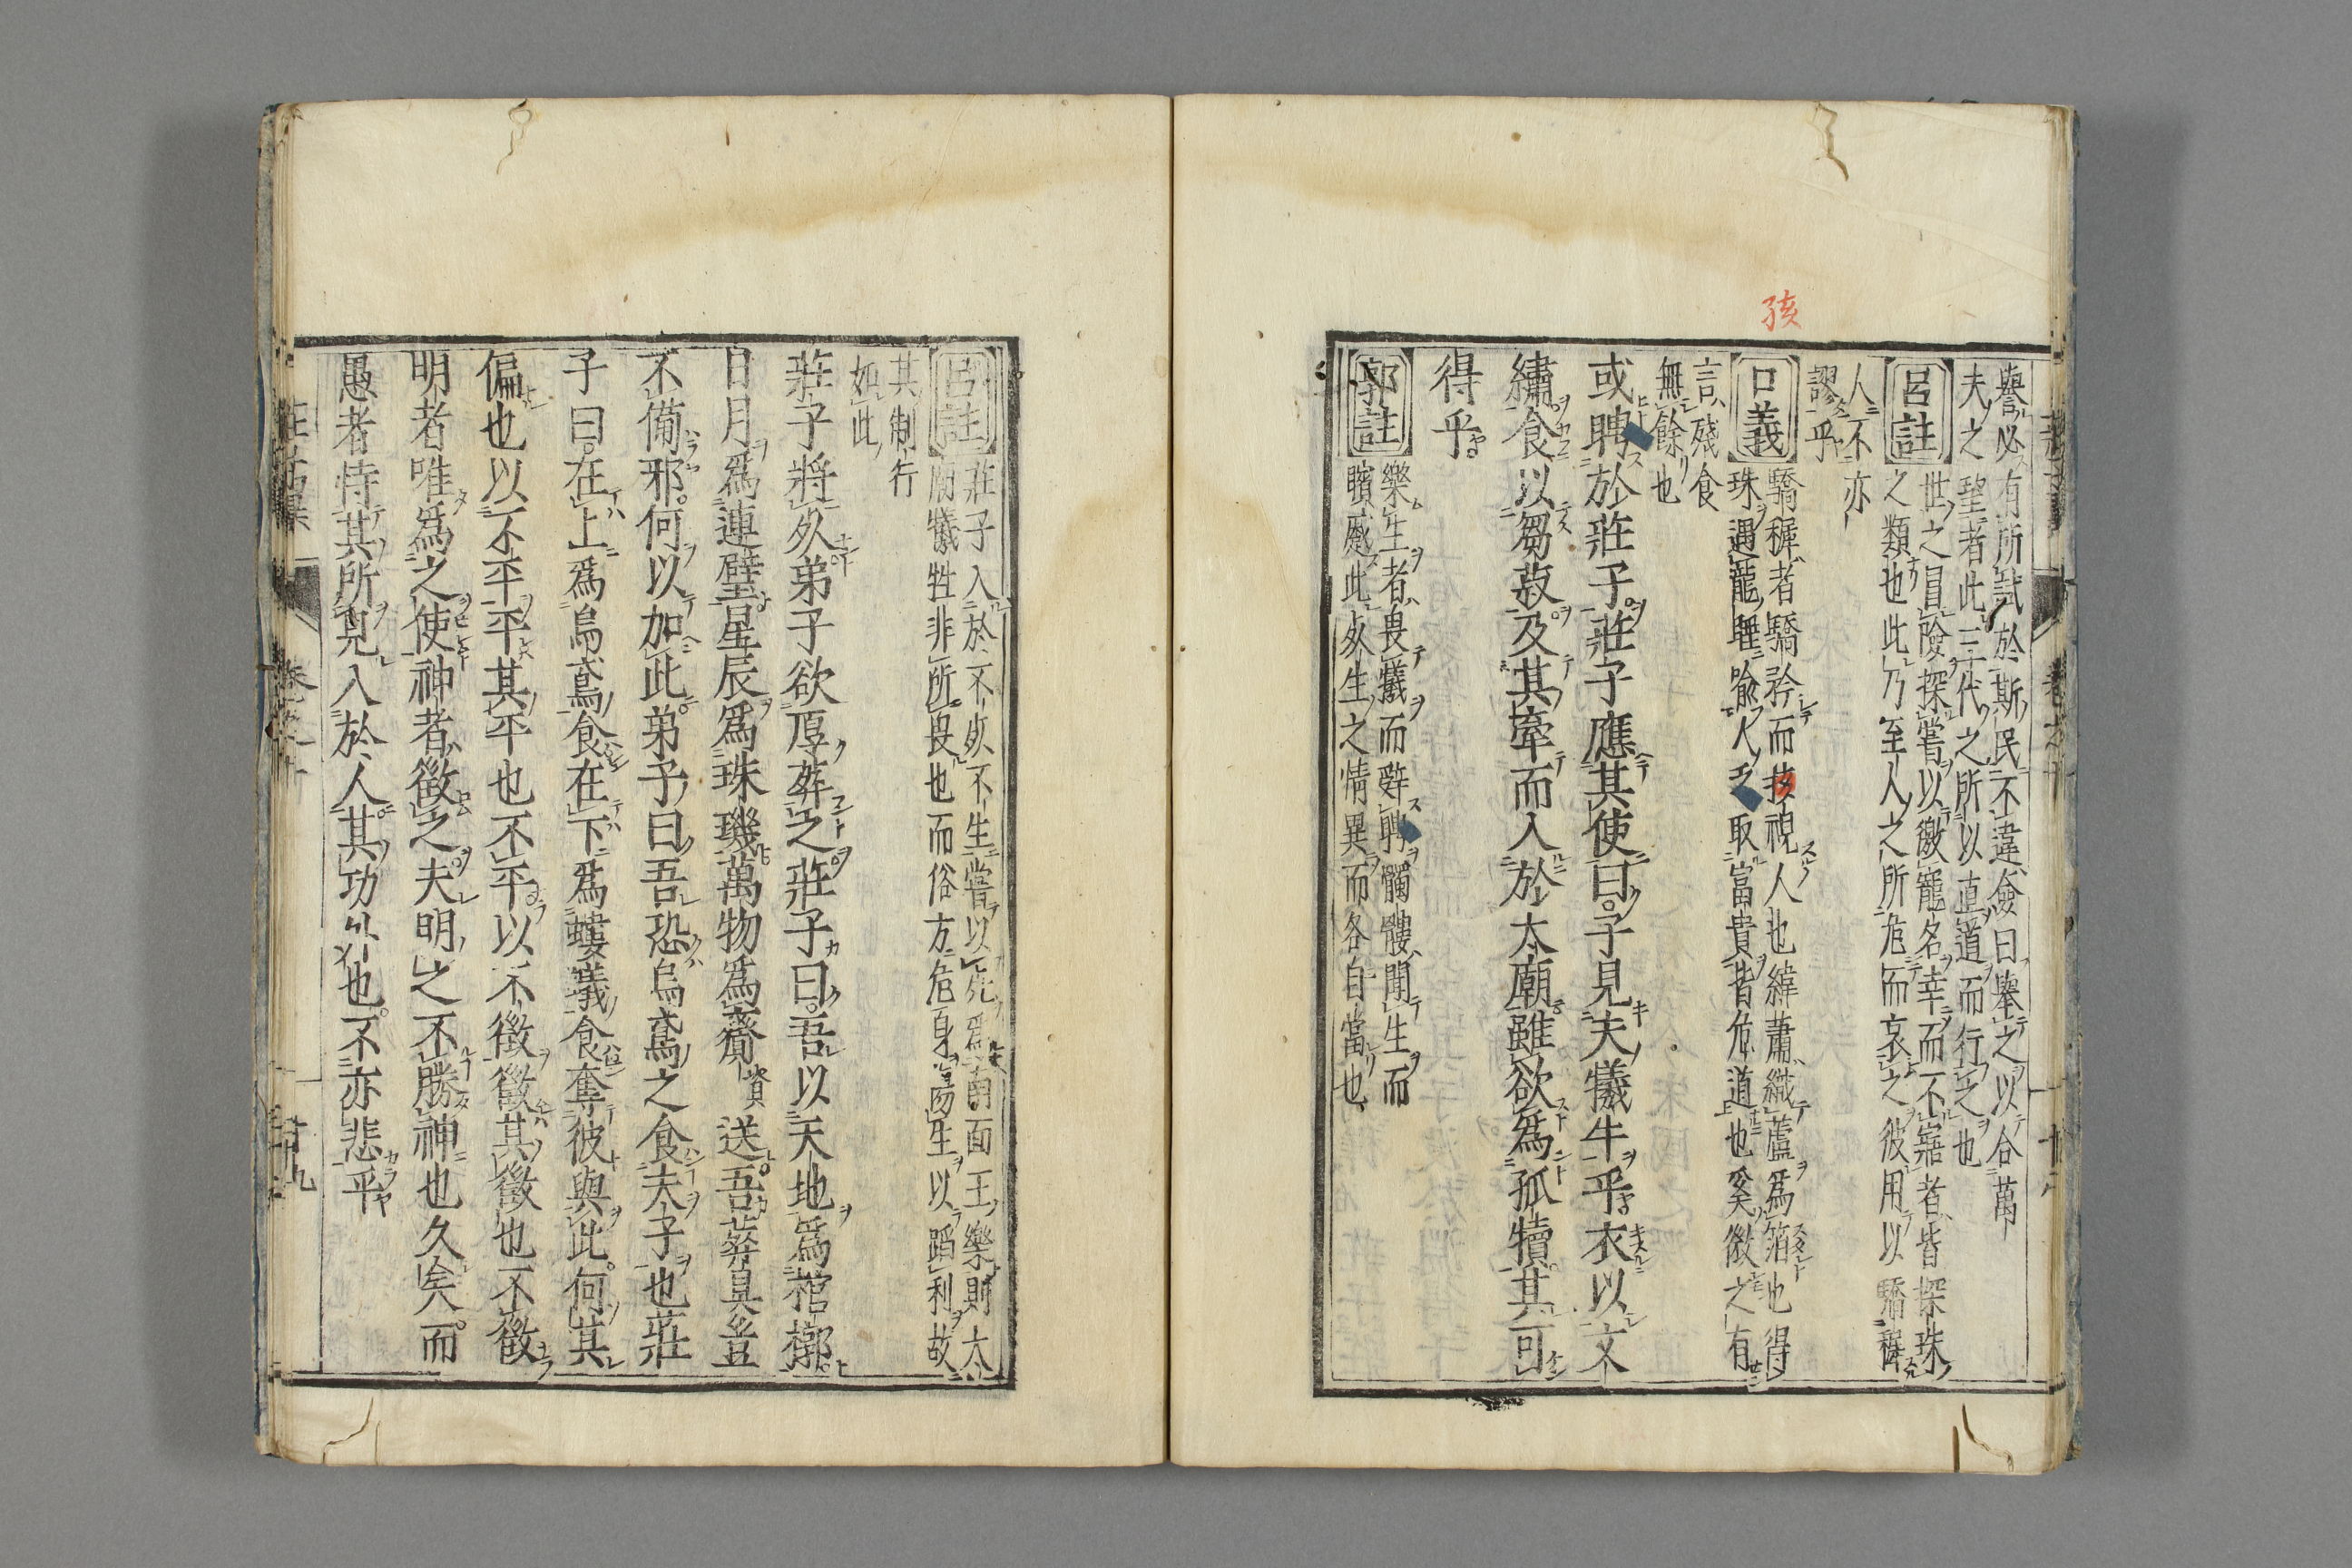 孩
譽必有所試於斯民不違僉曰舉之以合萬
夫之望者此三代之所以直道而行之也
呂註
世之冒險探嘗以徼寵名幸而不寤者皆探珠
之類也此乃至人之所危而哀之彼用以驕穉
人不亦
謬乎
口義
驕穉者驕矜而孩視人也緯蕭織蘆爲箔也得
珠遇龍睡喩人之取富貴皆危道也奚微之有
言殘食
無餘也
或聘於莊子莊子應其使曰子見夫犧牛乎衣以文
繡食以芻菽及其牽而入於太廟雖欲爲孤犢其可
得乎
郭註
樂生者畏犧而辭聘髑髏聞生而
矉蹙此死生之情異而各自當也
呂註
莊子入於不死不生嘗以死爲南面王樂則太
廟犧牲非所畏也而俗方危身傷生以蹈利故
其制行
如此
莊子將死弟子欲厚葬之莊子曰吾以天地爲棺槨
日月爲連璧星辰爲珠璣萬物爲齎資送吾葬具豈
不備邪何以加此弟子曰吾恐烏鳶之食夫子也莊
子曰在上爲烏鳶食在下爲螻蟻食奪彼與此何其
偏也以不平平其平也不平以不徵徵其徵也不徵
明者唯爲之使神者徵之夫明之不勝神也久矣而
愚者恃其所見入於人其功外也不亦悲乎